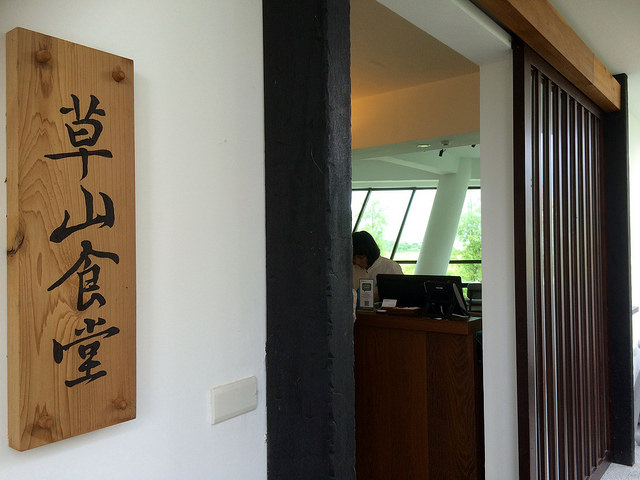 草山食堂